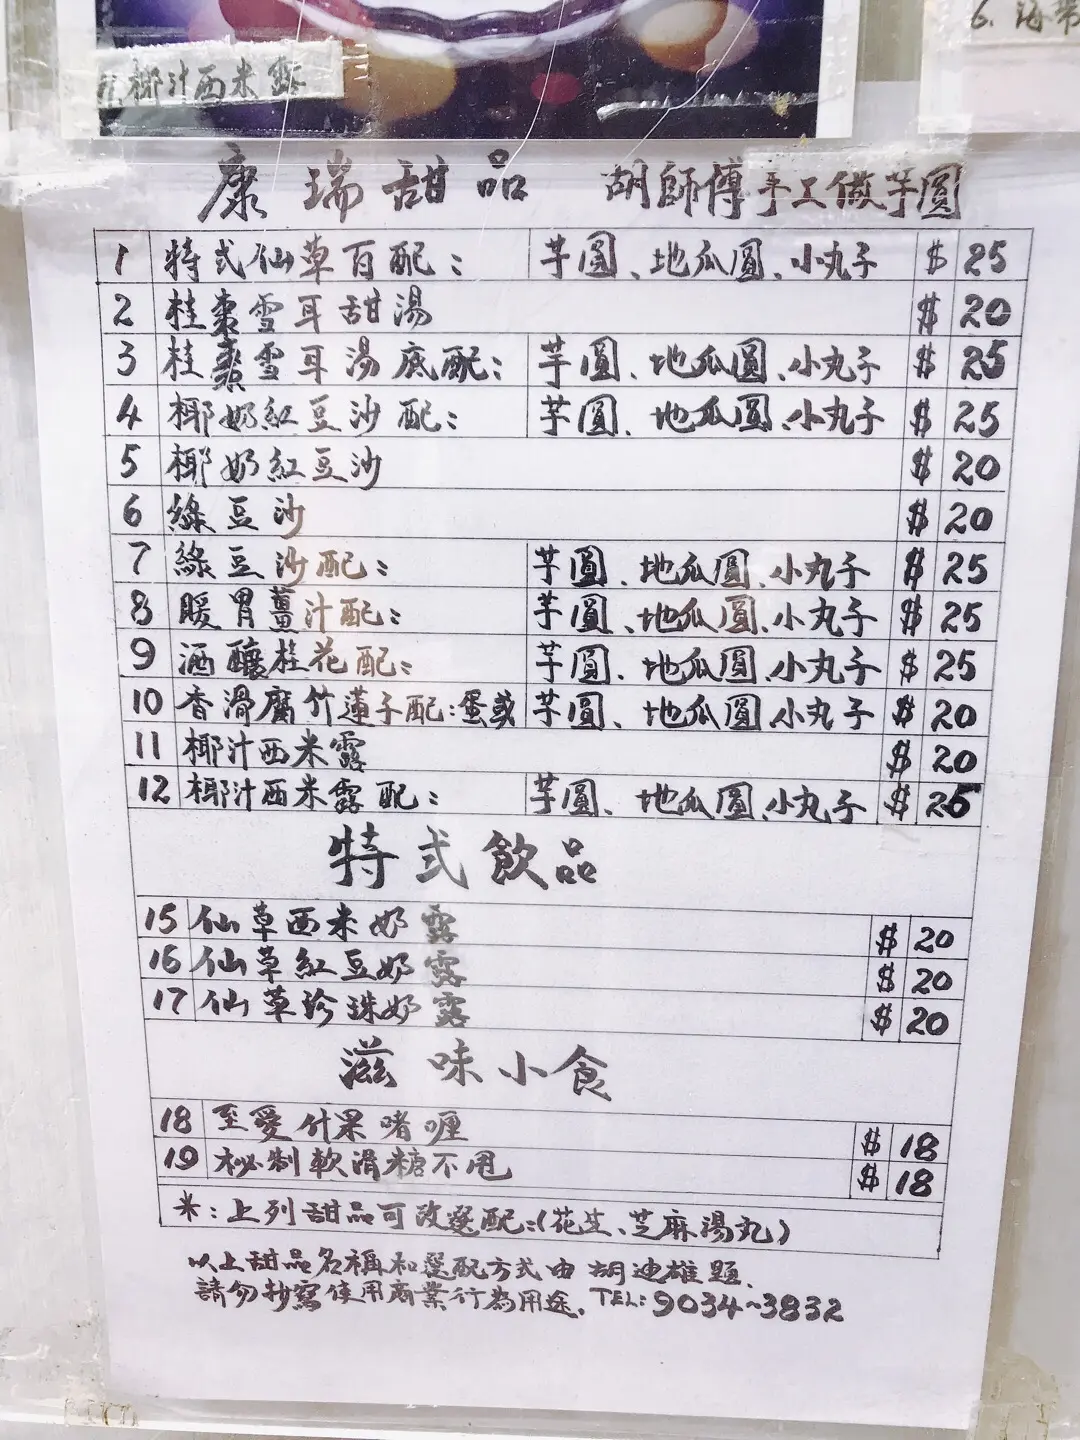 椰汁西米露
6. 海帶
康瑞甜品 胡師傅手工做芋圓
1 特式仙草百配: 芋圓、地瓜圓、小丸子 $ 25
2 桂棗雪耳甜湯 $ 20
3 桂棗雪耳湯底配: 芋圓、地瓜圓、小丸子 $ 25
4 椰奶紅豆沙配: 芋圓、地瓜圓、小丸子 $ 25
5 椰奶紅豆沙 $ 20
6 綠豆沙 $ 20
7 綠豆沙配: 芋圓、地瓜圓、小丸子 $ 25
8 暖胃薑汁配: 芋圓、地瓜圓、小丸子 $ 25
9 酒釀桂花配: 芋圓、地瓜圓、小丸子 $ 25
10 香滑腐竹蓮子配:蛋或 芋圓、地瓜圓、小丸子 $ 20
11 椰汁西米露 $ 20
12 椰汁西米露配: 芋圓、地瓜圓、小丸子 $ 25
特式飲品
15 仙草西米奶露 $ 20
16 仙草紅豆奶露 $ 20
17 仙草珍珠奶露 $ 20
滋味小食
18 至愛什果啫喱 $ 18
19 秘制軟滑糖不甩 $ 18
*:上列甜品可改選配:(花生、芝麻湯丸)
以上甜品名稱和選配方式由胡迪雄題.
請勿抄寫使用商業行為用途. TEL:9034~3832